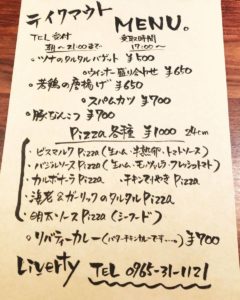 テイクアウト MENU。
TEL受付 受取時間
朝〜21:00まで 17:00〜
・ツナのタルタルバゲット ¥500
・ウィンナー盛り合わせ ¥650
・若鶏の唐揚げ ¥650
・スパムカツ ¥700
・豚なんこつ ¥700
Pizza各種 ¥1000 24cm
・ビスマルクPizza(生ハム・半熟卵・トマトソース)
・バジルソースPizza(生ハム・モッツァレラ・フレッシュトマト)
・カルボナーラPizza ・チキンてりやきPizza
・海老&ガーリックのタルタルPizza
・明太ソースPizza(シーフード)
・リバティーカレー(バターチキンカレーです…。) ¥700
Liverty TEL 0965-31-1121